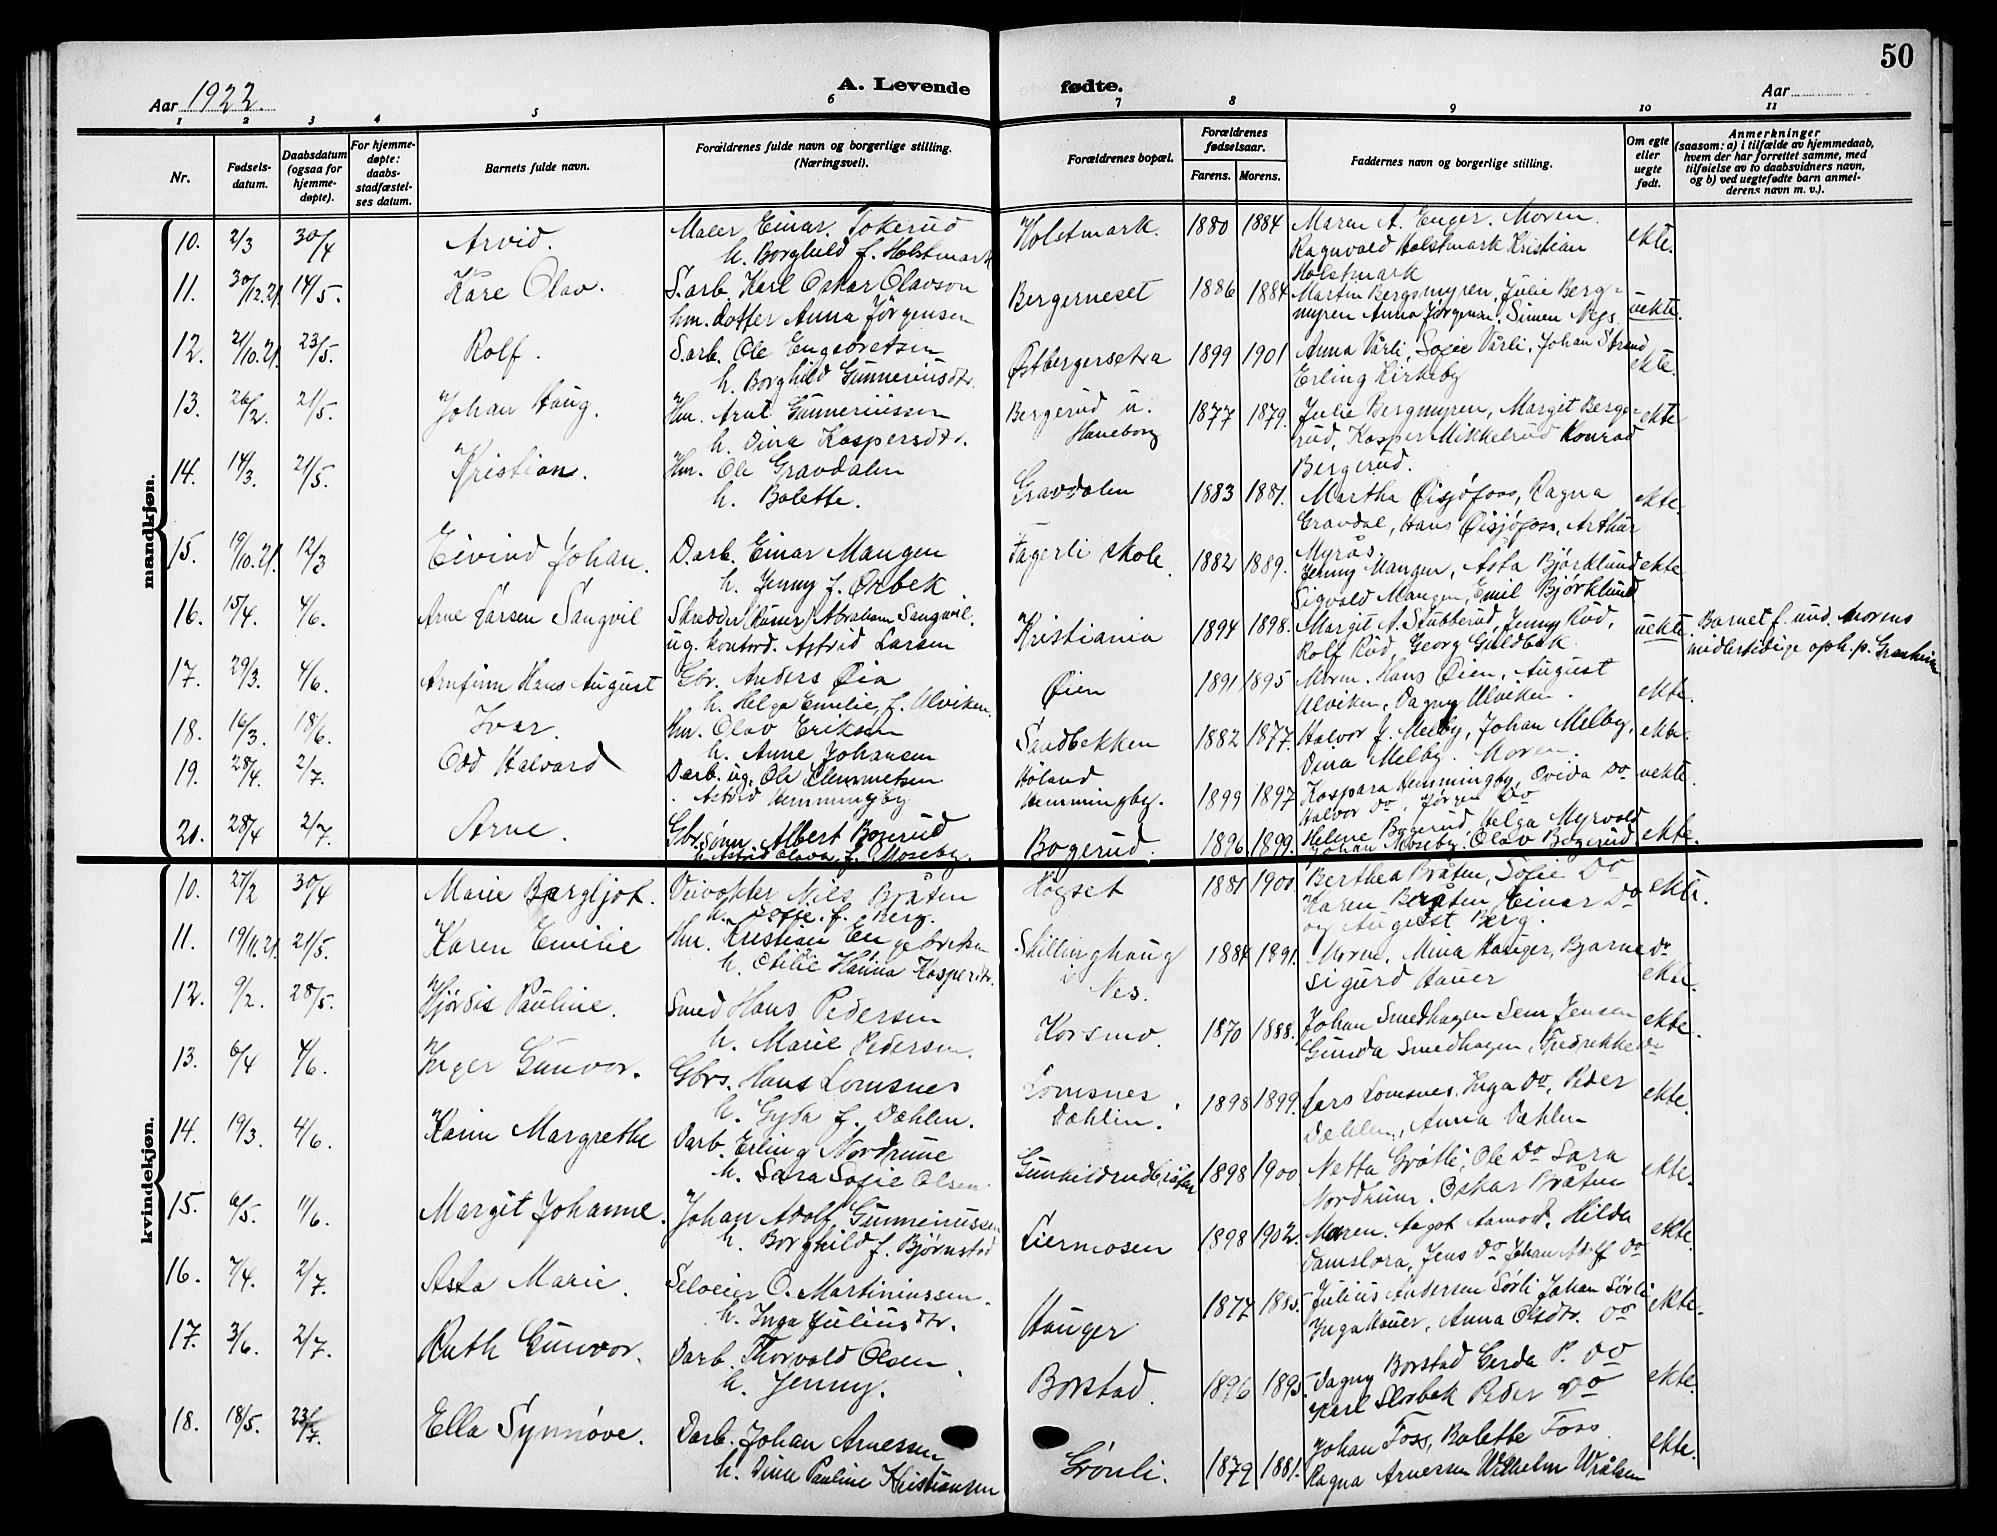 50
Aar 1922.
A. Levende
fødte.
Aar
1 2 3 4 5 6 7 8 9 10 11
Nr.
Fødsels-
datum.
Daabsdatum
(ogsaa for
hjemme-
døpte).
For hjemme-
døpte:
daabs-
stadfæstel-
ses datum.
Barnets fulde navn.
Forældrenes fulde navn og borgerlige stilling.
(Næringsvei).
Forældrenes bopæl.
Forældrenes
fødselsaar.
Farens. Morens.
Faddernes navn og borgerlige stilling.
Om egte
eller
uegte
født.
Anmerkninger
(saasom: a) i tilfælde av hjemmedaab,
hvem der har forrettet samme, med
tilføielse av to daabsvidners navn,
og b) ved uegtefødte barn anmel-
derens navn m. v.).
mandkjøn.
10. 2/3 30/4 Arvid. Maler Einar Tokerud Holstmark. 1880 1884 Maren A. Enger. Moren. ekte.
h. Borghild f. Holstmark Ragnvald Holstmark Kristian
Holstmark
11. 30/12.21. 14/5. Kåre Olav. S.arb. Karl Oskar Olavson Bergerneset 1886 1884 Martin Bergsmyren, Julie Berg- uekte.
hm. dotter Anna Jørgensen myren Anna Jørgensen, Simen
12. 21/10.21. 23/5. Rolf. S.arb. Ole Engebretsen Østbergersetra 1899 1901 Anna Vårli, Sofie Vårli, Johan Strand ekte.
h. Borghild Gunneriusdtr. Erling Kirkeby
13. 26/2. 21/5. Johan Haug. Hm. Arnt Gunneriussen Bergerud u. 1877 1879. Julie Bergmyren, Margit Berge- ekte
h. Dina Kaspersdtr. Haneborg rud, Kasper Mikkelrud Konrad
Bergerud.
14. 14/3. 21/5. Kristian. Hm. Ole Gravdalen Gravdalen 1883 1881. Martha Øisjøfoss, Ragna ekte.
h. Bolette. Gravdal, Hans Øisjøfoss, Arthur
Myrås.
15. 19/10.21. 12/3 Eivind Johan. D.arb. Einar Mangen Fagerli skole. 1882 1889. Jenny Mangen, Asta Bjørklund ekte
h. Jenny f. Ørbek Sigvald Mangen, Emil Bjørklund
16. 15/4. 4/6. Arne Larsen Sangvil Skredder Abraham Sangvil. Kristiania 1894 1898. Margit A. Stubberud, Jenny Rud, uekte. Barnet f. und. Morens
ug. kontord. Astrid Larsen Rolf Rud, Georg Guldbek midlertidige oph. p. Granheim
17. 29/3. 4/6. Arnfinn Hans August Gbr. Anders Øia Øien 1891 1895 Moren. Hans Øien, August ekte.
h. Helga Emilie f. Ulviken. Ulviken, Dagny Ulviken.
18. 16/3. 18/6. Ivar. Hm. Olav Eriksen Sandbekken 1882 1877. Halvor J. Melby, Johan Melby, ekte.
h. Anne Johansen Dina Melby. Moren.
19. 28/4. 2/7. Odd Halvard Darb. ug. Ole Clemmetsen Høland 1899 1897 Kaspara Hemmingby, Ovida Do uekte.
Astrid Hemmingby Hemmingby. Halvor Do, Jørgen Do
20. 28/4 2/7. Arne. Gbr.sønn. Albert Bogerud Bogerud. 1896 1899. Helene Bogerud, Helga Myrvold ekte.
h. Astrid Olava f. Moseby. Johan Moseby. Olav Bogerud
kvindekjøn.
10. 27/2 30/4 Marie Bergljot. Veivokter Nils Bråten Høgset 1881 1900 Berthea Bråten, Sofie Do ekte.
h. Sofie f. Berg. Karen Bråten, Einar Do
og August Berg.
11. 19/11.21. 21/5. Karen Emilie Hm. Kristian Engebretsen Skillinghaug 1884 1891. Moren, Mina Hauger, Bjarne Do ekte.
h. Otilie Hanna Kasperdtr. i Nes. Sigurd Hauer
12. 9/2. 28/5. Hjørdis Pauline. Smed Hans Pedersen Korsmo. 1870 1888. Johan Smedhagen Sem Jensen ekte.
h. Marie Pedersen. Gunda Smedhagen, Fredrekke Do
13. 6/4 4/6. Inger Gunvor. Gbrs. Hans Lomsnes Lomsnes 1898 1899. Lars Lomsnes. Inga Do, Peder ekte.
h. Gyda f. Dæhlen. Dæhlin. Dæhlen, Anna Dæhlen
14. 19/3. 4/6. Karin Margrethe Darb. Erling Nordhune Gunhildrudbråten 1898 1900 Netta Grøtli, Ole Do Sara ekte.
h. Sara Sofie Olsen. Nordhune. Oskar Bråten
15. 6/5. 11/6. Margit Johanne. Johan Adolf Gunneriussen Liermosen 1898 1902. Moren. Aagot Aamodt, Hilda ekte.
h. Borghild f. Bjørnstad Damslora, Jens Do Johan Adolf Do
16. 7/4. 2/7. Asta Marie. Seleeier O. Martiniussen. Hauger 1877 1885. Julius Andersen Sørli Johan Sørli ekte.
h. Inga Juliusdtr. Inga Hauer, Anna Olsdtr. Do
17. 3/6. 2/7. Ruth Gunvor. Darb. Thorvald Olsen Borstad. 1896 1895. Dagny Borstad Gerda P. Do ekte.
h. Jenny. Karl Slorbek Peder Do
18. 18/5. 23/7. Ella Synnøve. Darb. Johan Arnesen Grønli. 1879 1881. Johan Foss, Bolette Foss. ekte.
h. Dina Pauline Kristiansen Ragna Arnesen Wilhelm